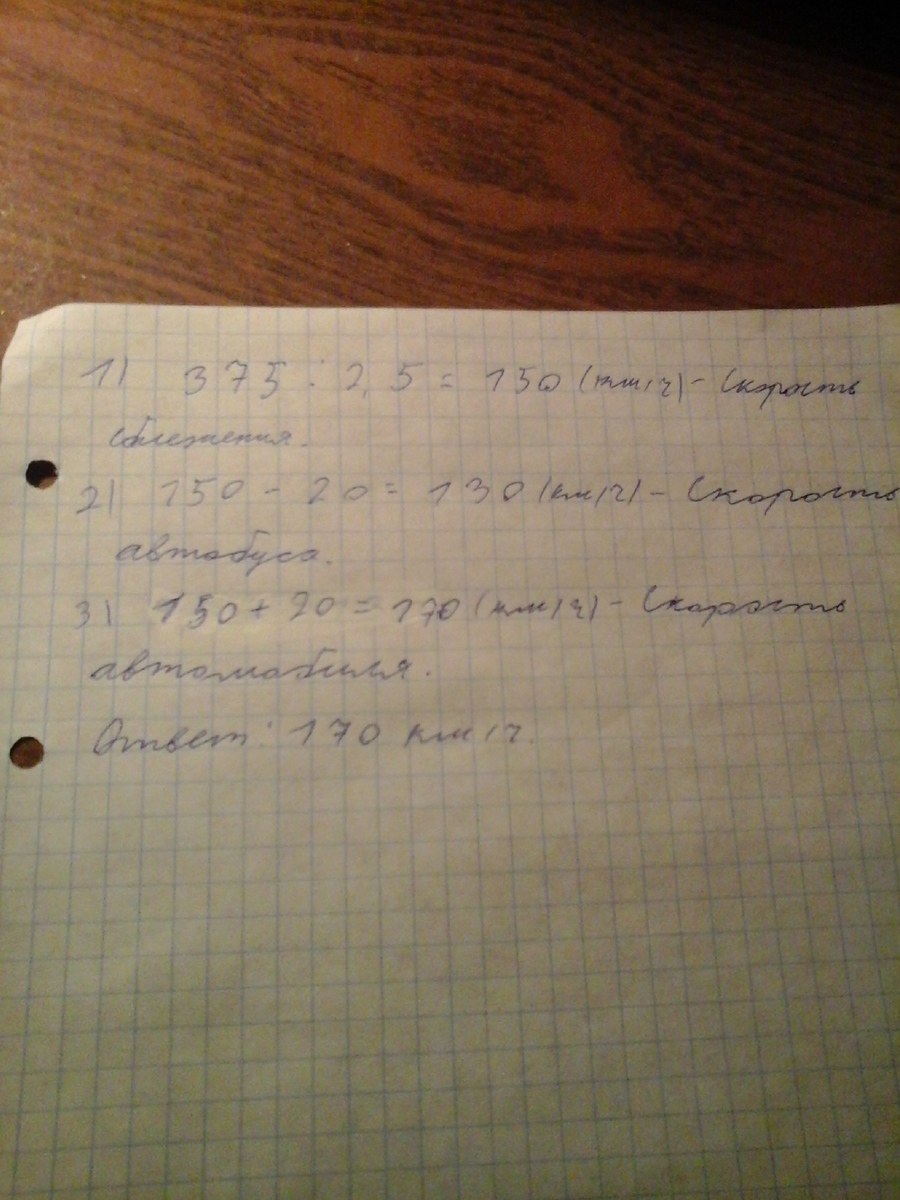 1) 375 : 2,5 = 150 (км/ч) - Скорость
сближения.
2) 150 - 20 = 130 (км/ч) - Скорость
автобуса.
3) 150 + 20 = 170 (км/ч) - Скорость
автомобиля.
Ответ: 170 км/ч.